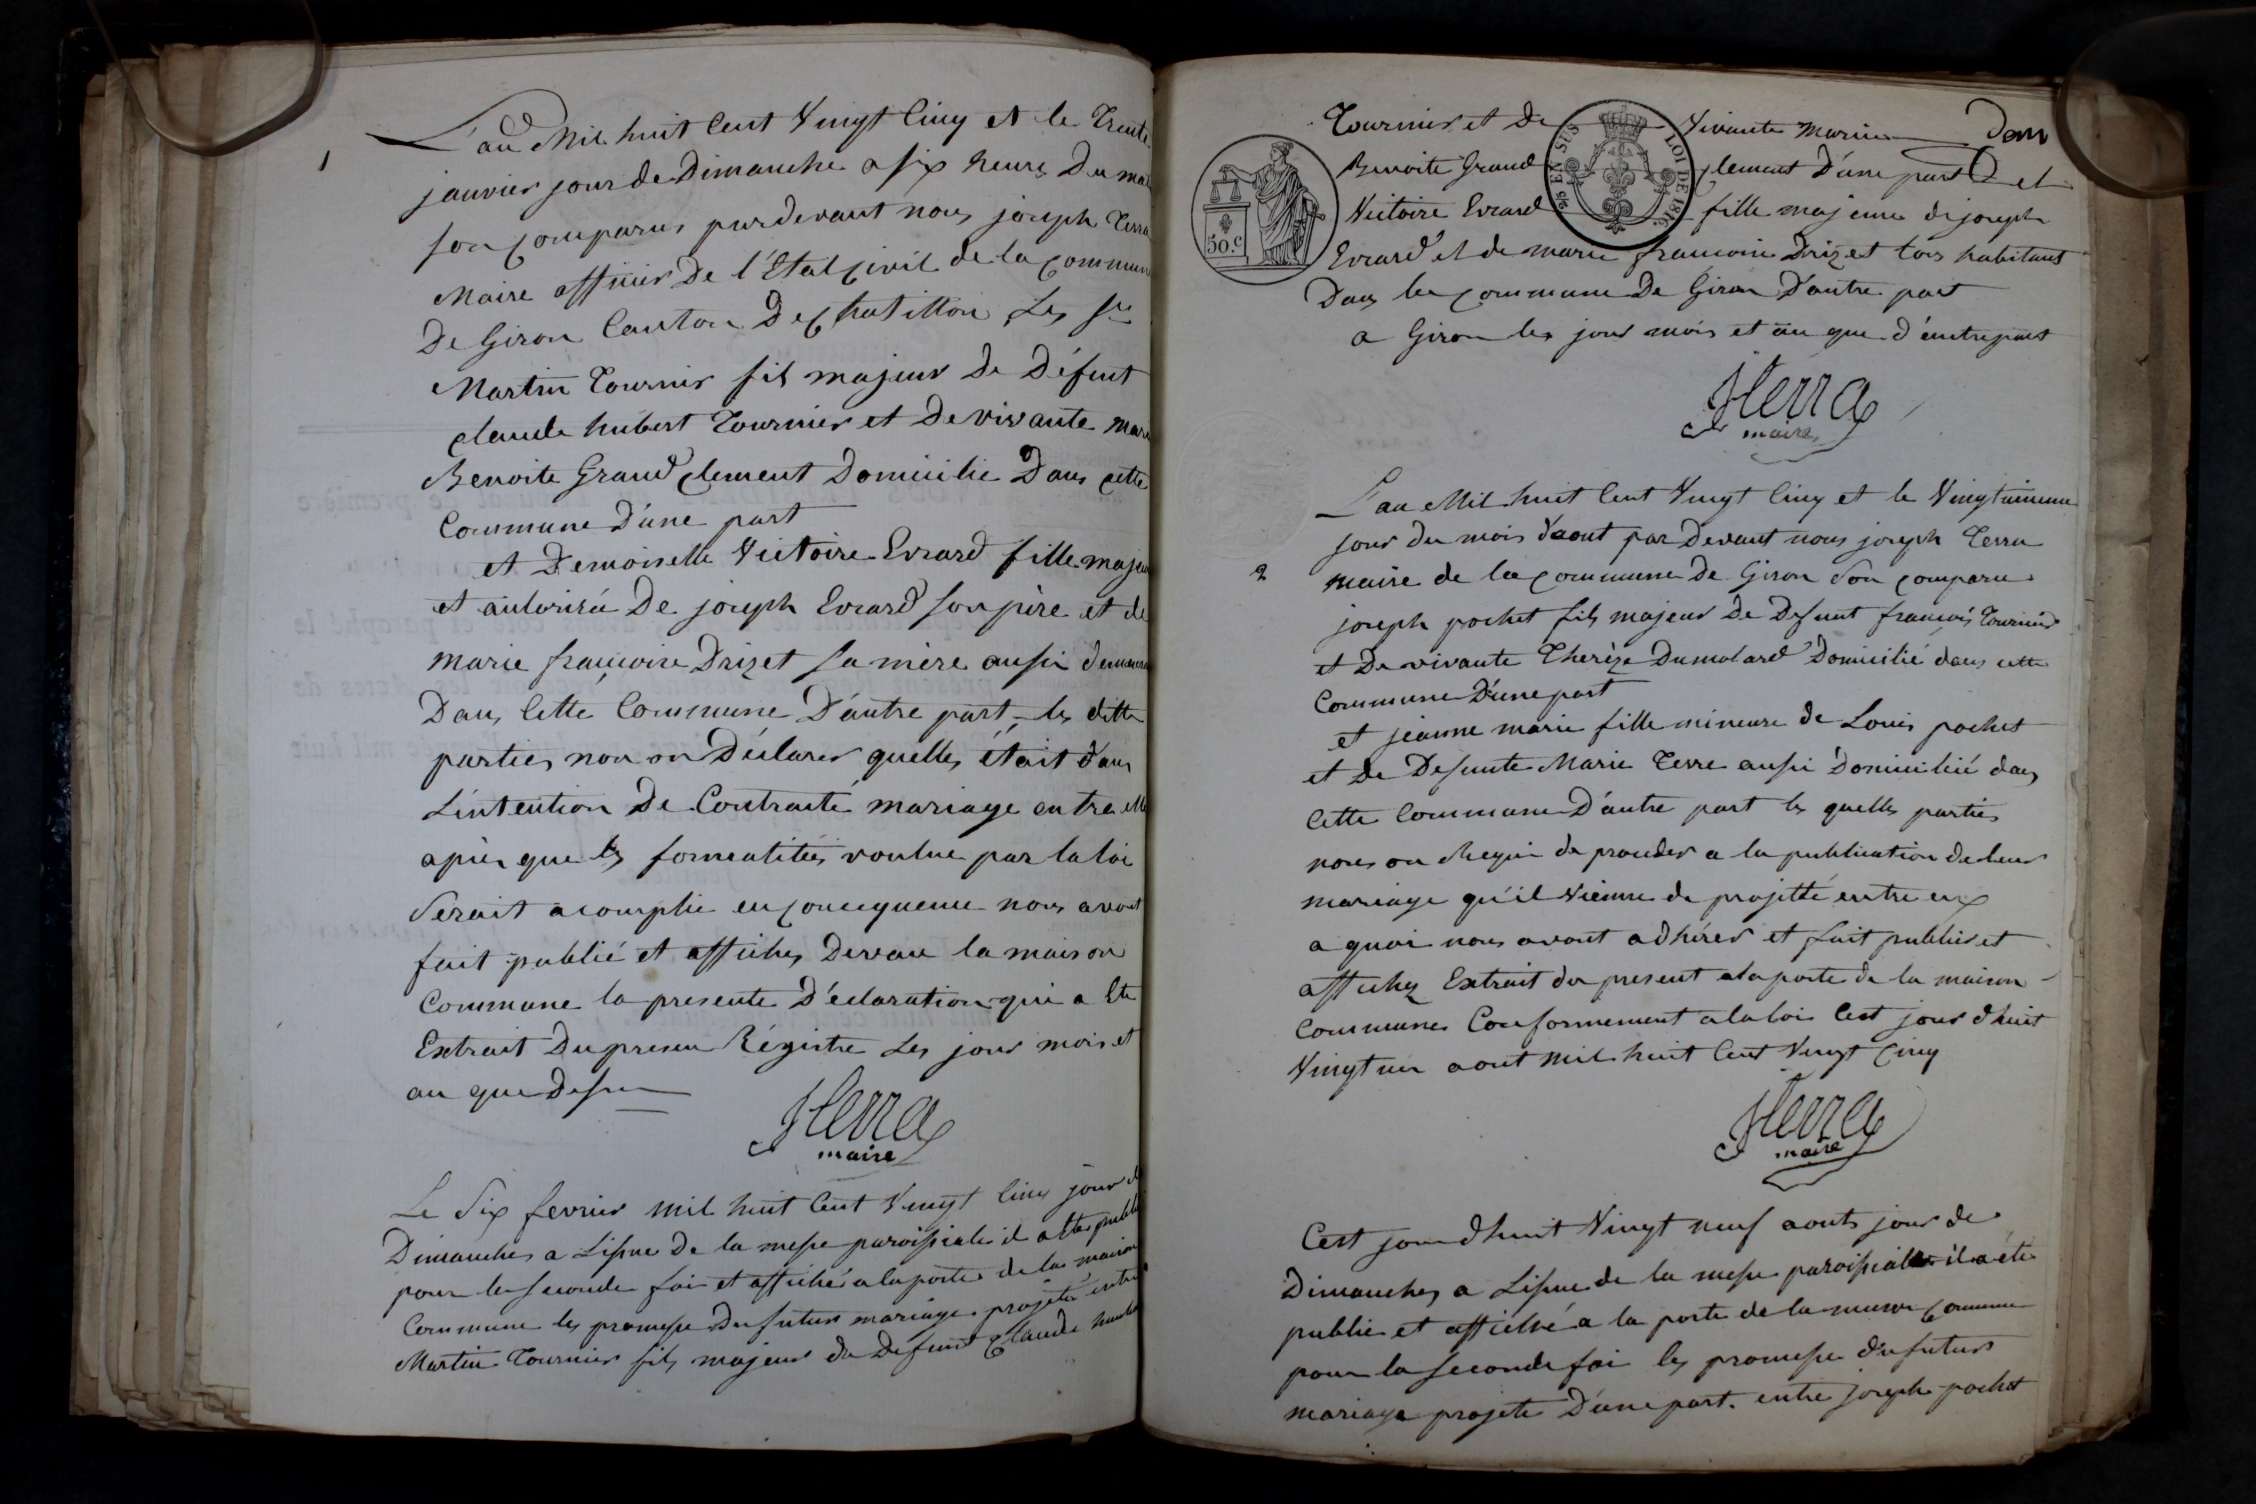 1
L'an Mil huit Cent Vingt Cinq et le Trente
janvier jour de Dimanche a six heures Du mat
son comparus pardevant nous joseph Terra
Maire officier De l'Etat civil de la commune
De Giron Canton De chatillon Les sr
Martin Tournier fils majeur De Défunt
claude hubert Tournier et De vivante Marie
Benoite Grand clement Domicilie Dans cette
Commune D'une part
et Demoiselle Victoire Evrard fille majeu
et autorisée De joseph Evrard son père et de
Marie françoise Drizet sa mère aussi demeura
Dans Cette Commune D'autre part, les ditte
parties nou on Déclarer quelles était dans
L'intention De Contracté mariage entre elle
après que les formalitées voulue par la loi
Serait acomplie en concequence nous avont
fait publié et affiches Devant la maison
Commune la presente Déclaration qui a Ete
Extrait Du presen Régistre Les jour mois et
an que Dessu
JTerra
maire
Le Six fevrier mil huit Cent Vingt Cinq jour d
Dimanches a Lissue de la messe paroissiale il a Ete publ
pour la seconde fois et affiché a la porte de la maison
Commune les promesse Du futur mariage projeté entre
Martin Tournier fils majeur de Defunt Claude hube
50.c
EN SUS
LOI DE 1816.
Tournier et De Vivante Marie Dom
Benoite Grand clement D'une part et
Victoire Evrard fille majeure de joseph
Evrard et de marie francoise Drizet tous habitant
Dans la commune De Giron D'autre part
a Giron les jour mois et an que d'autre part
JTerra
maire
2
L'an Mil huit Cent Vingt Cinq et le Vingtunieme
jour du mois d'aout par Devant nous joseph Terra
maire de la commune De Giron Son comparu
joseph pochet fils majeur De Defunt francois Tournier
et De vivante Therèze Dumolard Domicilié dans cette
Commune D'une part
et jeanne marie fille mineure de Louis pochet
et De Defunte Marie Terre aussi Domicilié dans
Cette Commune D'autre part les quelles parties
nous on Requi de proceder a la publication de leur
mariage qu'il Vienne de projetté entre eux
a quoi nous avont adhérer et fait publier et
affichez Extrait du present a la porte de la maison
Communes Conformement a la loi Cest jour d'huit
Vingt un aout Mil huit Cent Vingt Cinq
JTerra
maire
Cest jour d'huit Vingt neuf aouts jour de
Dimanches a Lissue de la messe paroissialle il a été
publie et affiché a la porte de la maison Commune
pour la seconde foi les promesse du futurs
mariage projeté D'une part. entre joseph pochet